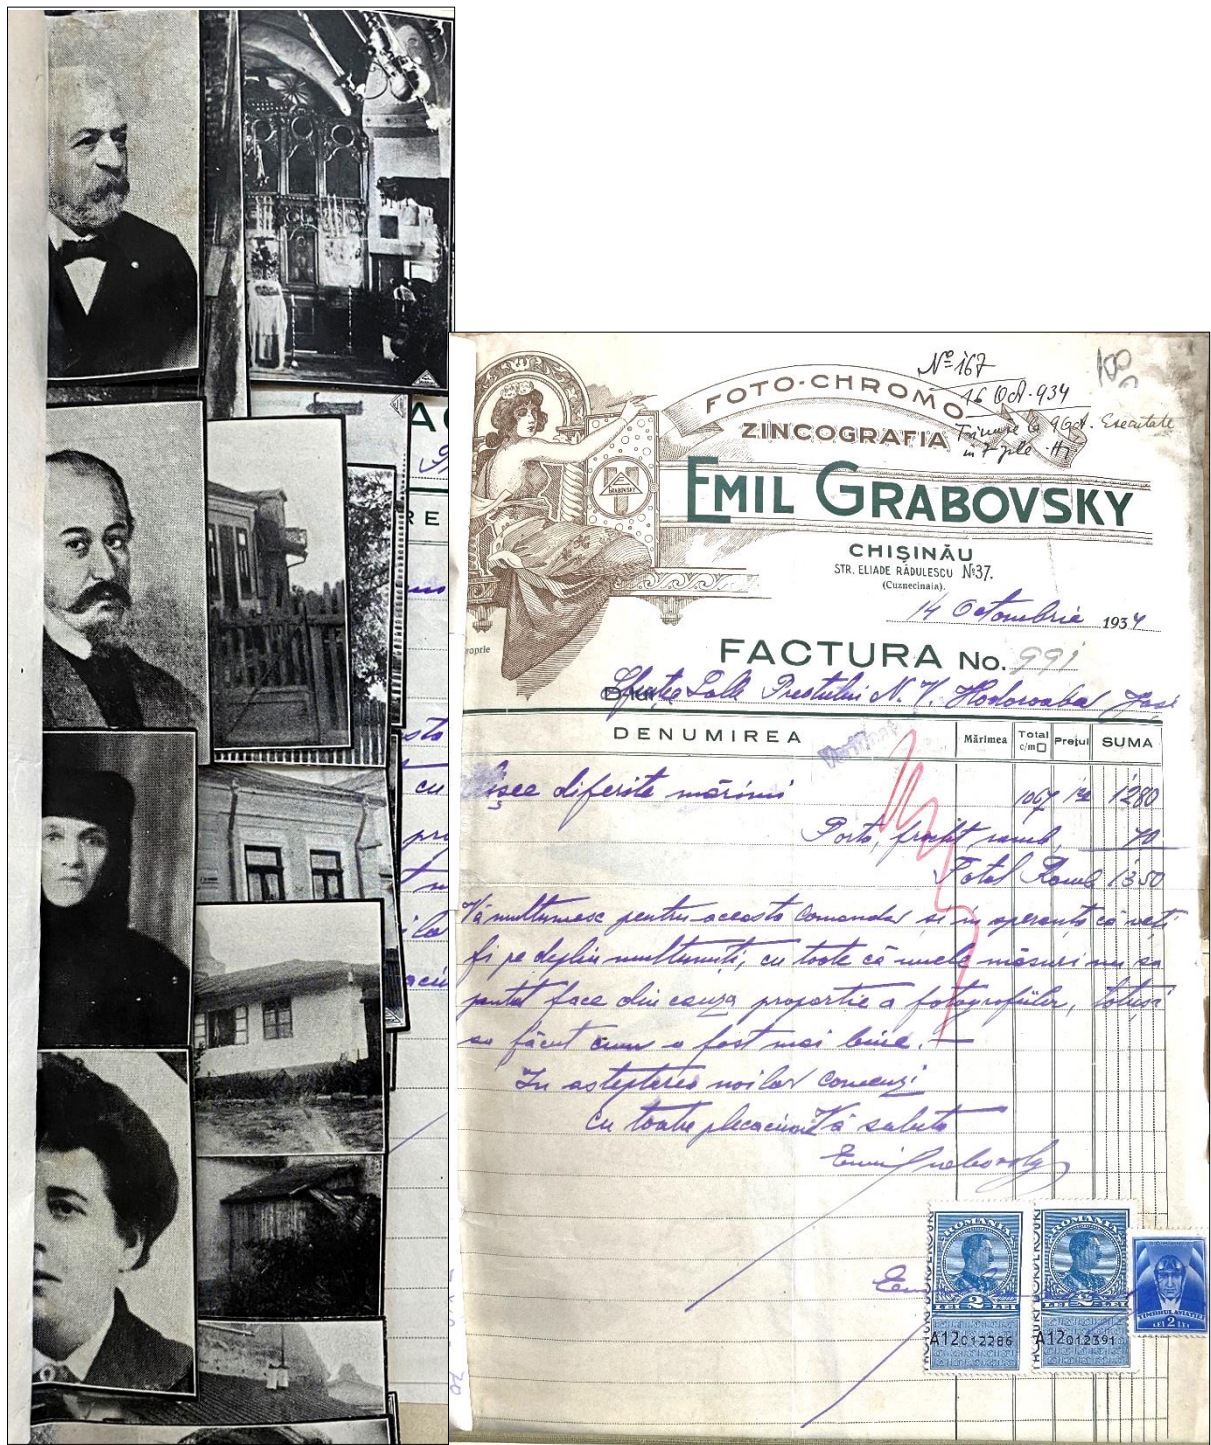 Nº 167
16 Oct. 934
FOTO-CHROMO
ZINCOGRAFIA
in 7 zile
GRABOVSKY
EMIL GRABOVSKY
CHIȘINĂU
STR. ELIADE RĂDULESCU Nº37.
(Cuznecinaia).
14 Octombrie 1934
FACTURA No. 991
Sfinției Sale Preotului N. V. Hodoroaba Jași
DENUMIREA Mărimea Total c/m□ Prețul SUMA
diferite mărimi 1067 1280
Porto, 70
Total 1350
Vă multumesc pentru aceasta comanda si in speranta că veți
fi pe deplin multumiți, cu toate că unele măsuri nu sa
putut face din cauza proportie a fotografiilor, totuși
sa făcut cum a fost mai bine. —
In asteptarea noilor comenzi
cu toate plecaciune Vă saluta
Emil Grabovsky
ROMANIA
2
LEI LEI
A12012286
ROMANIA
2
LEI LEI
A12012391
TIMBRUL AVIAȚIEI
LEI 2 LEI